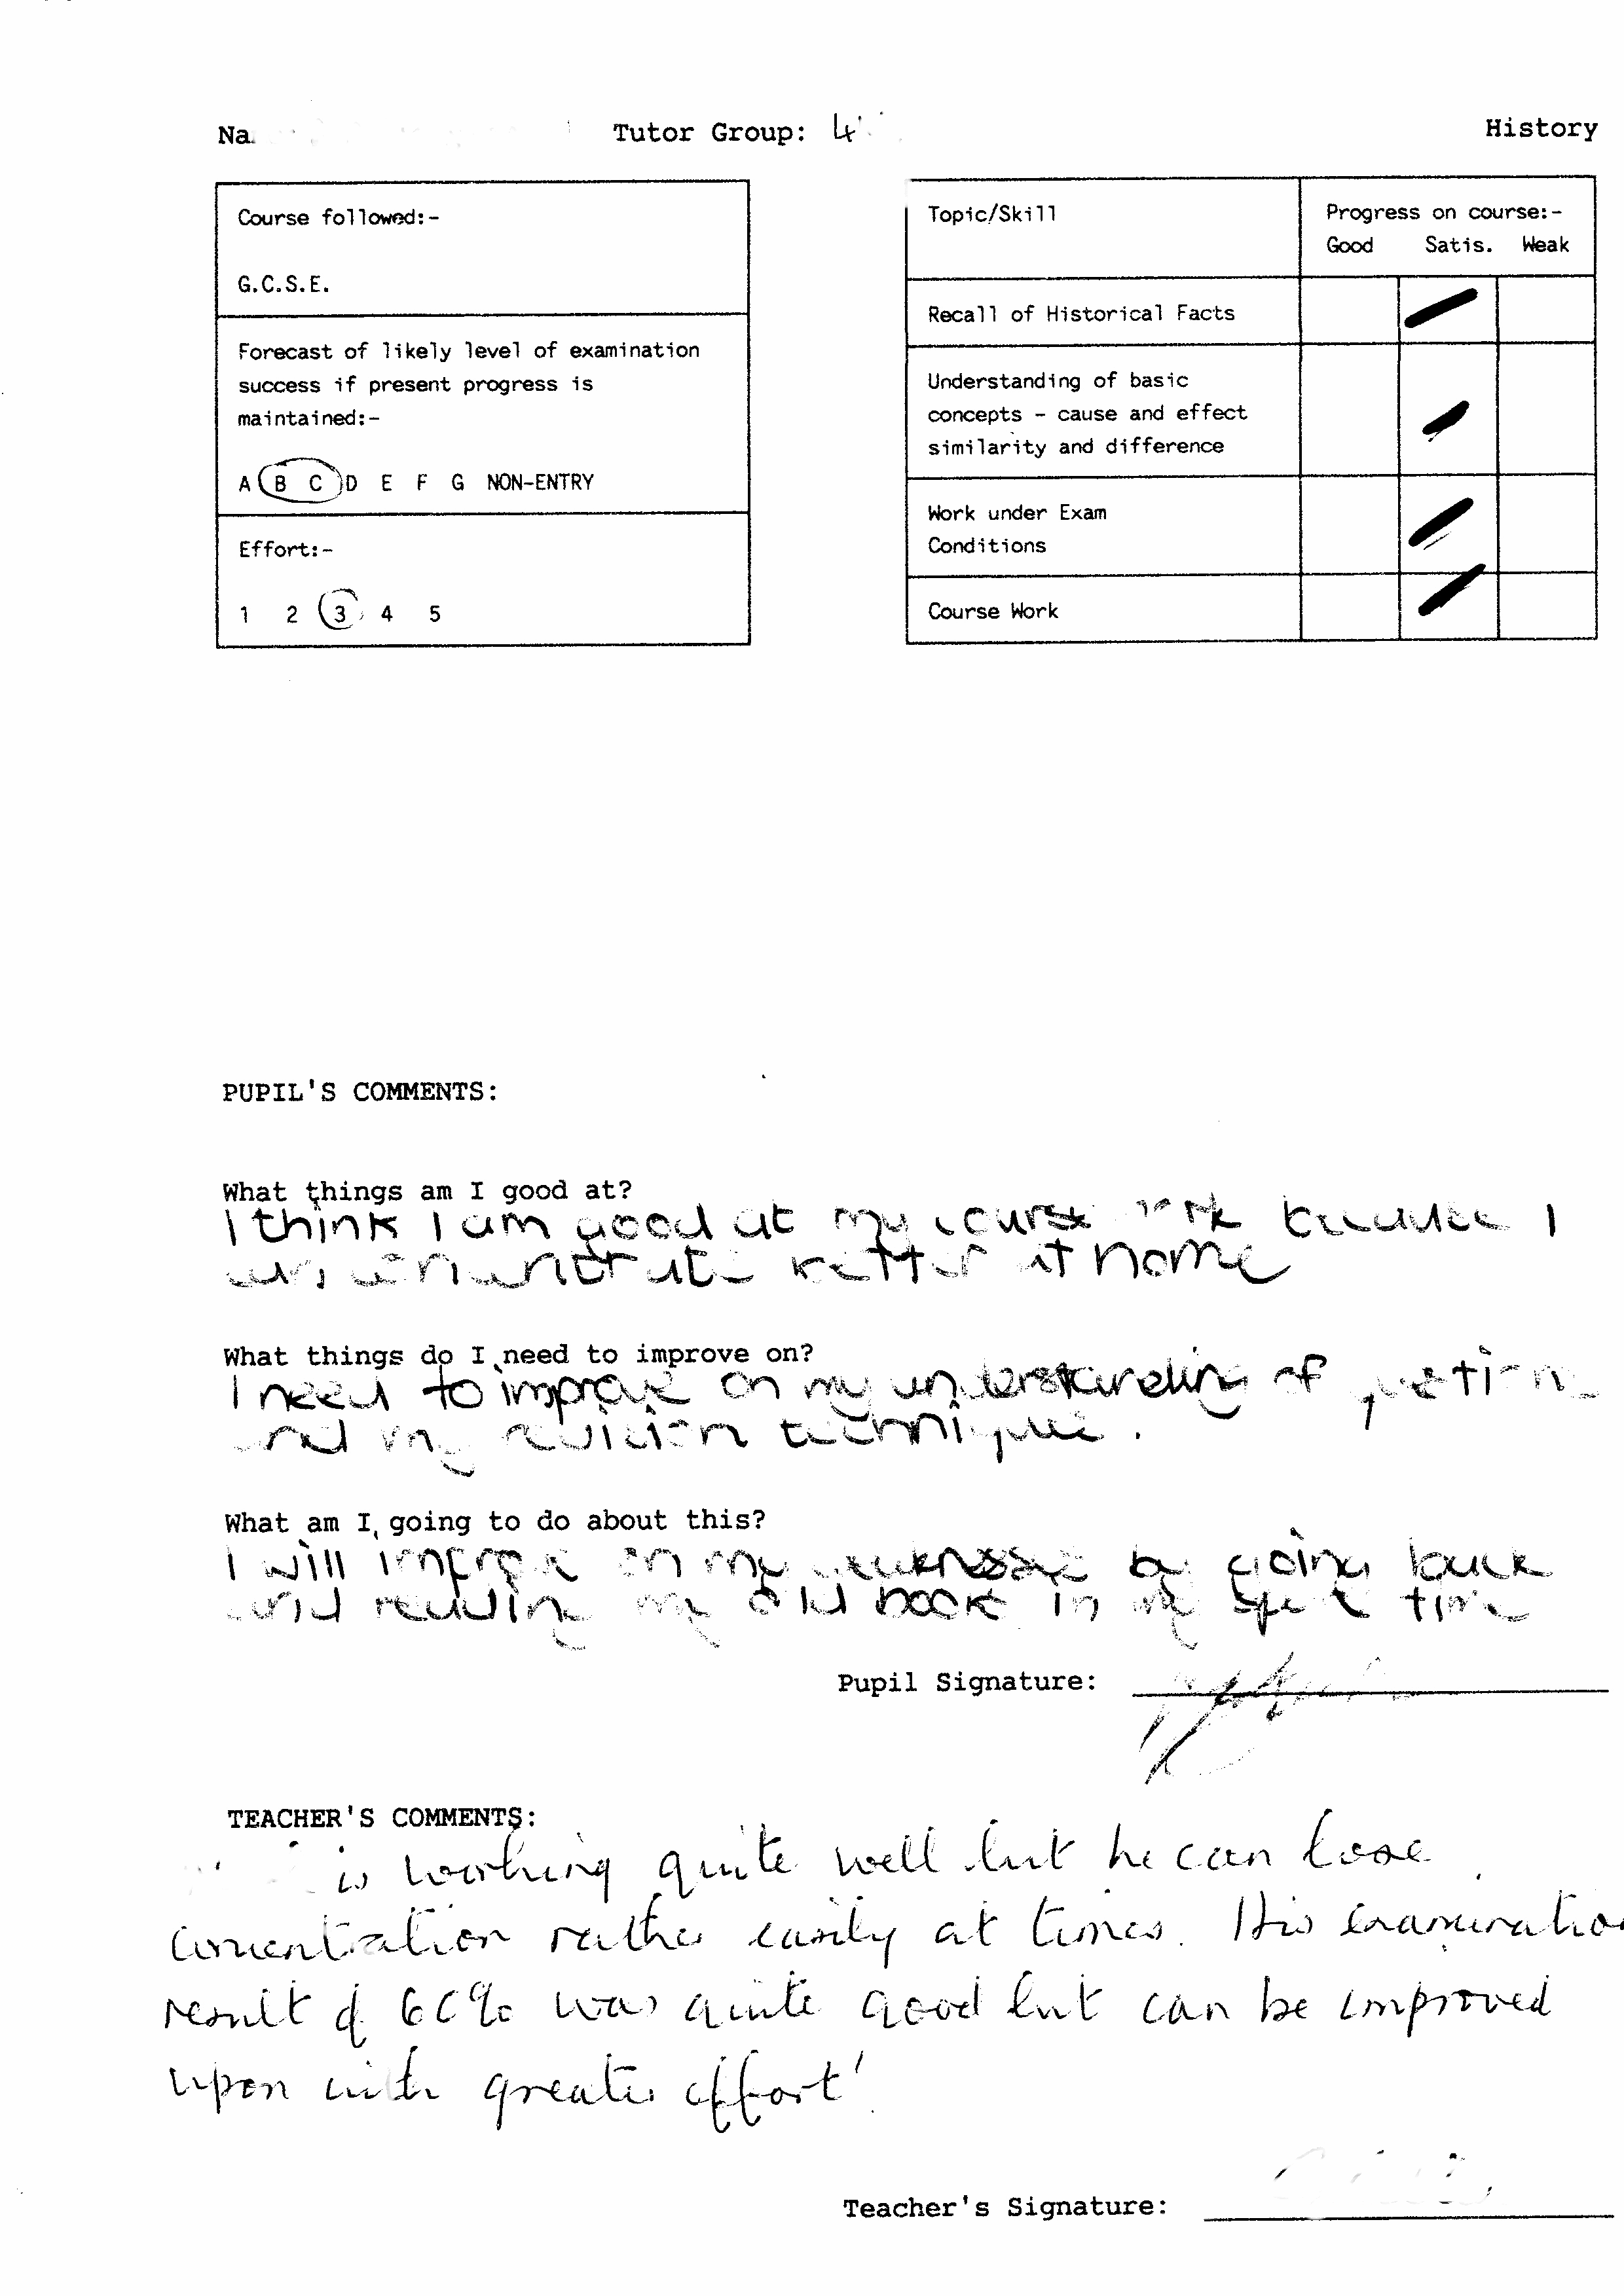 Na
Tutor Group: 4
History
Course followed:-
G.C.S.E.
Forecast of likely level of examination
success if present progress is
maintained:-
A B C D E F G NON-ENTRY
Effort:-
1 2 3 4 5
Topic/Skill
Progress on course:-
Good Satis. Weak
Recall of Historical Facts
Understanding of basic
concepts - cause and effect
similarity and difference
Work under Exam
Conditions
Course Work
PUPIL'S COMMENTS:
What things am I good at?
I think I am good at my course work because I
can concentrate better at home
What things do I need to improve on?
I need to improve on my understanding of question
and my revision technique.
What am I going to do about this?
I will improve on my by going back
and reading my old book in my spare time
Pupil Signature:
TEACHER'S COMMENTS:
is working quite well but he can lose
concentration rather easily at times. His examination
result of 60% was quite good but can be improved
upon with greater effort!
Teacher's Signature: